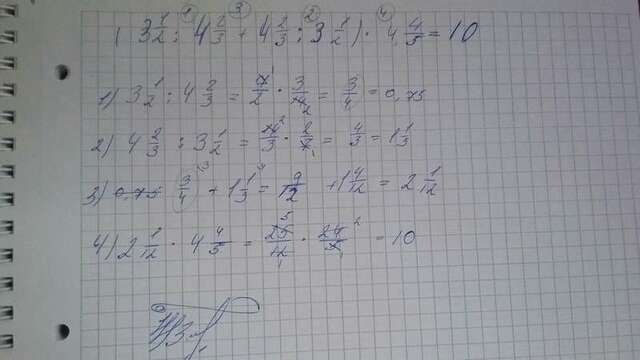 ( 3 1/2 : 4 2/3 + 4 2/3 : 3 1/2 ) · 4 4/5 = 10
1) 3 1/2 : 4 2/3 = 7/2 · 3/14 = 3/4 = 0,75
2) 4 2/3 : 3 1/2 = 14/3 · 2/7 = 4/3 = 1 1/3
3) 0,75 3/4 + 1 1/3 = 9/12 + 1 4/12 = 2 1/12
4) 2 1/12 · 4 4/5 = 25/12 · 24/5 = 10